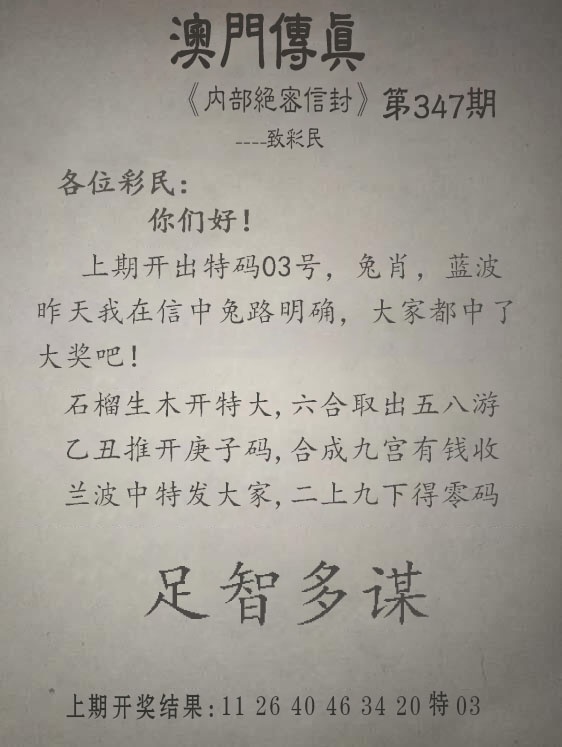 澳門傳眞
《内部絕密信封》第347期
----致彩民
各位彩民：
你们好！
上期开出特码03号，兔肖，蓝波
昨天我在信中兔路明确，大家都中了
大奖吧！
石榴生木开特大,六合取出五八游
乙丑推开庚子码,合成九宫有钱收
兰波中特发大家,二上九下得零码
足智多谋
上期开奖结果:11 26 40 46 34 20特03